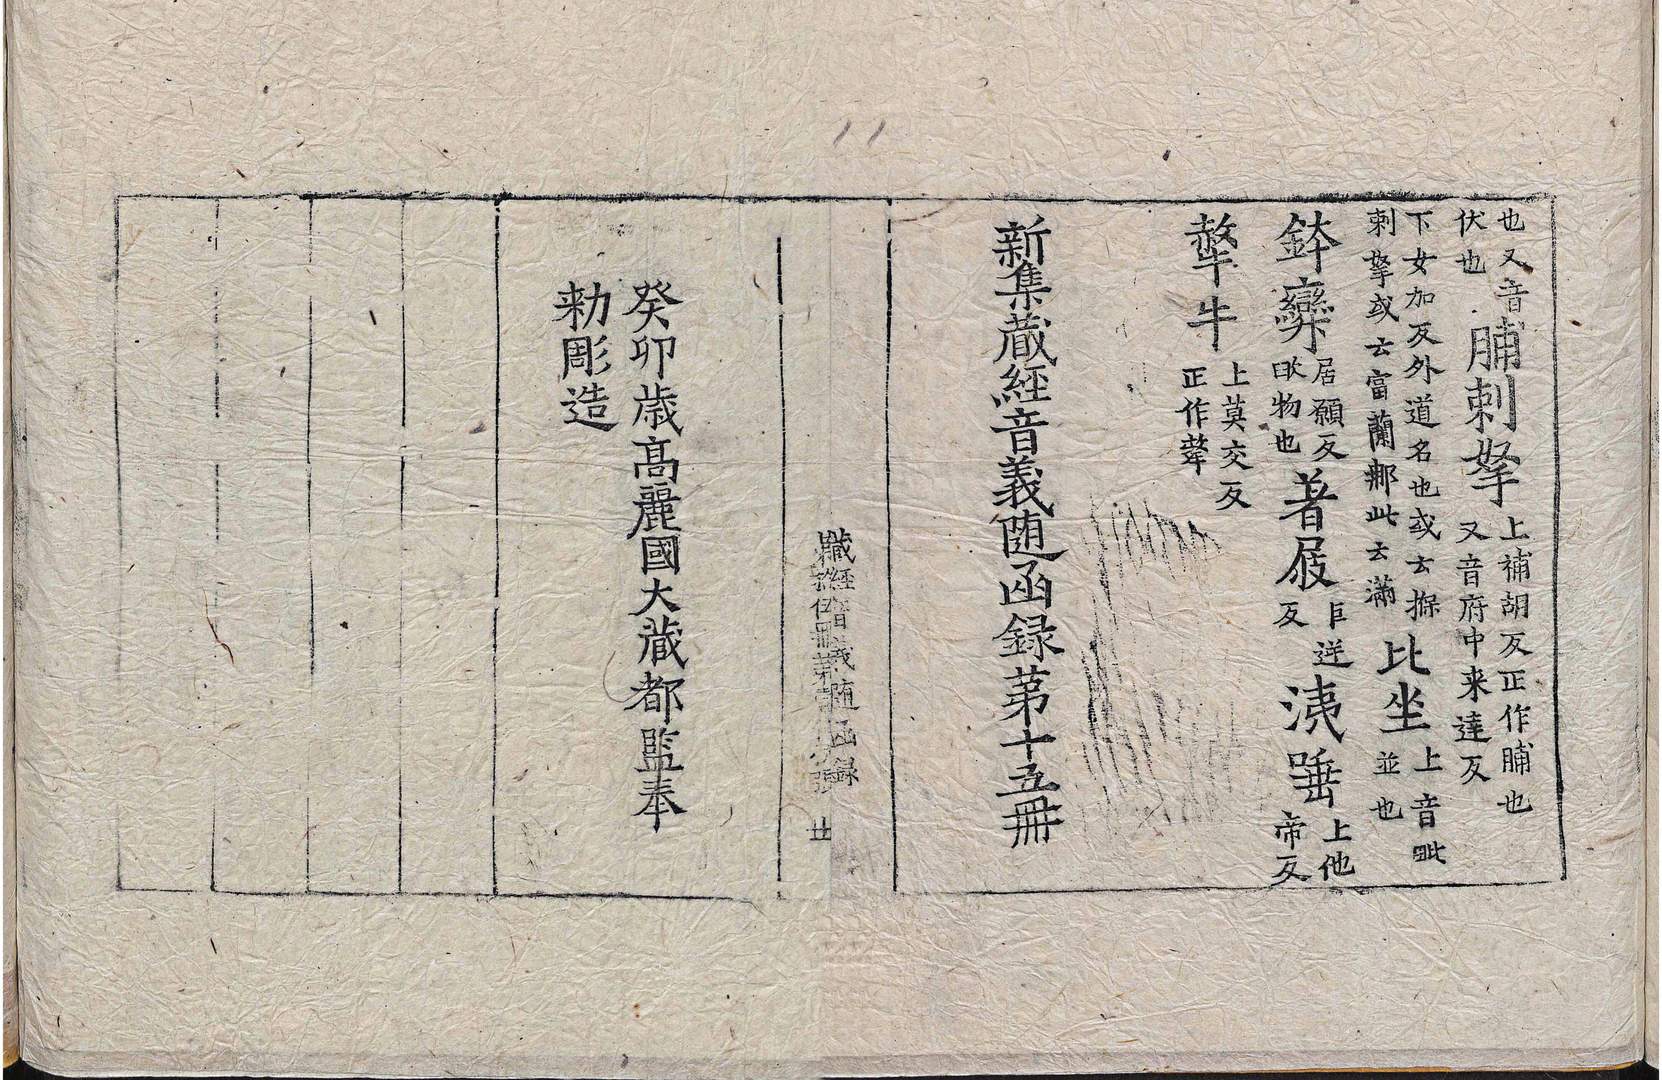 也又音
伏也
脯刺拏
上補胡反正作脯也
又音府中来達反
下女加反外道名也或云搽
刺拏或云富蘭那此云滿
比坐
上音毗
並也
鉢
居願反
物也
著屐
巨逆
反
洟唾
上他
帝反
牛
上莫交反
正作犛
新集蔵經音義随函録第十五冊
蔵經音義随函録
癸卯歳髙麗國大蔵都監奉
勑彫造